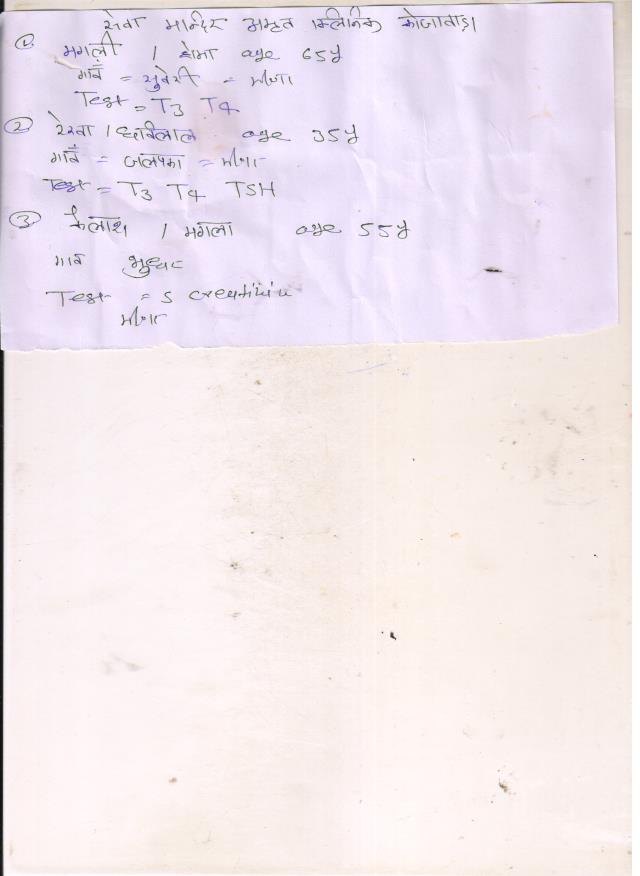 सेवा मान्दिर अमृत क्लिनिक कोजावाड़ा
① मगली / होमा age 65y
गावँ = सुबेरी = मीणा
Test = T3 T4
② रेखा / age 35y
गावँ = = मीणा
Test = T3 T4 TSH
③ कैलाश / मगला age 55y
गाव
Test = S creatinin
मीणा